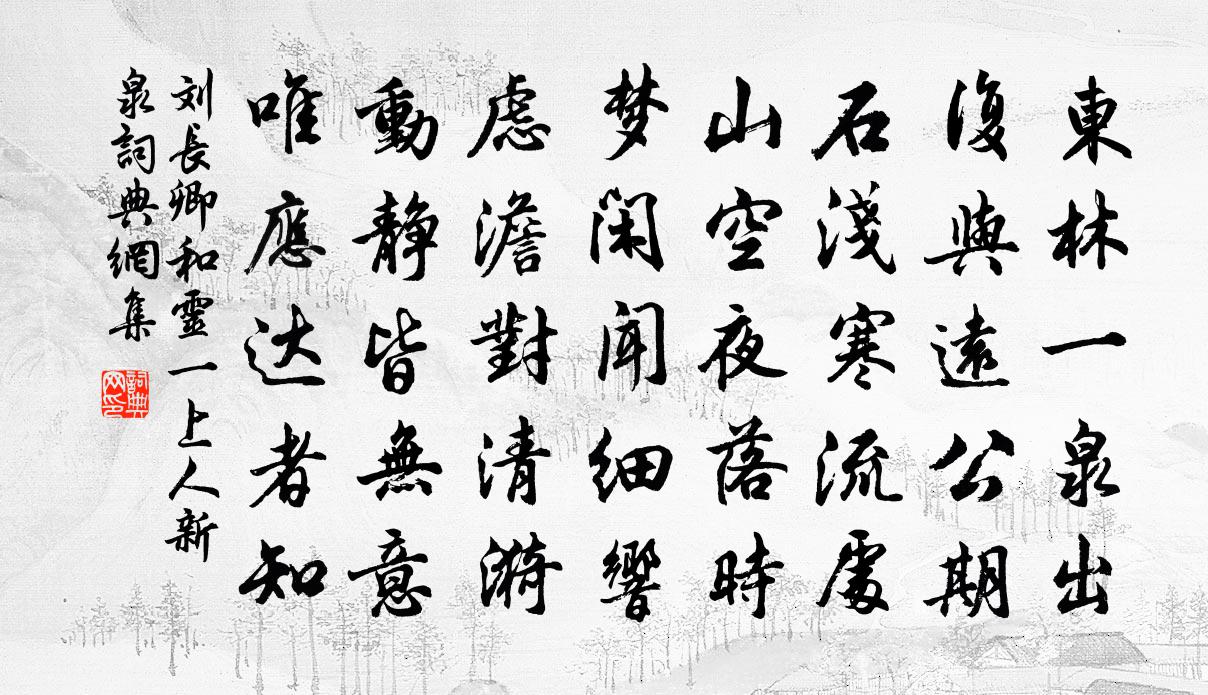 東林一泉出
復與遠公期
石淺寒流處
山空夜落時
梦闲聞细響
慮澹對清漪
動静皆無意
唯應达者知
刘長卿和靈一上人新
泉詞典網集
詞典网印